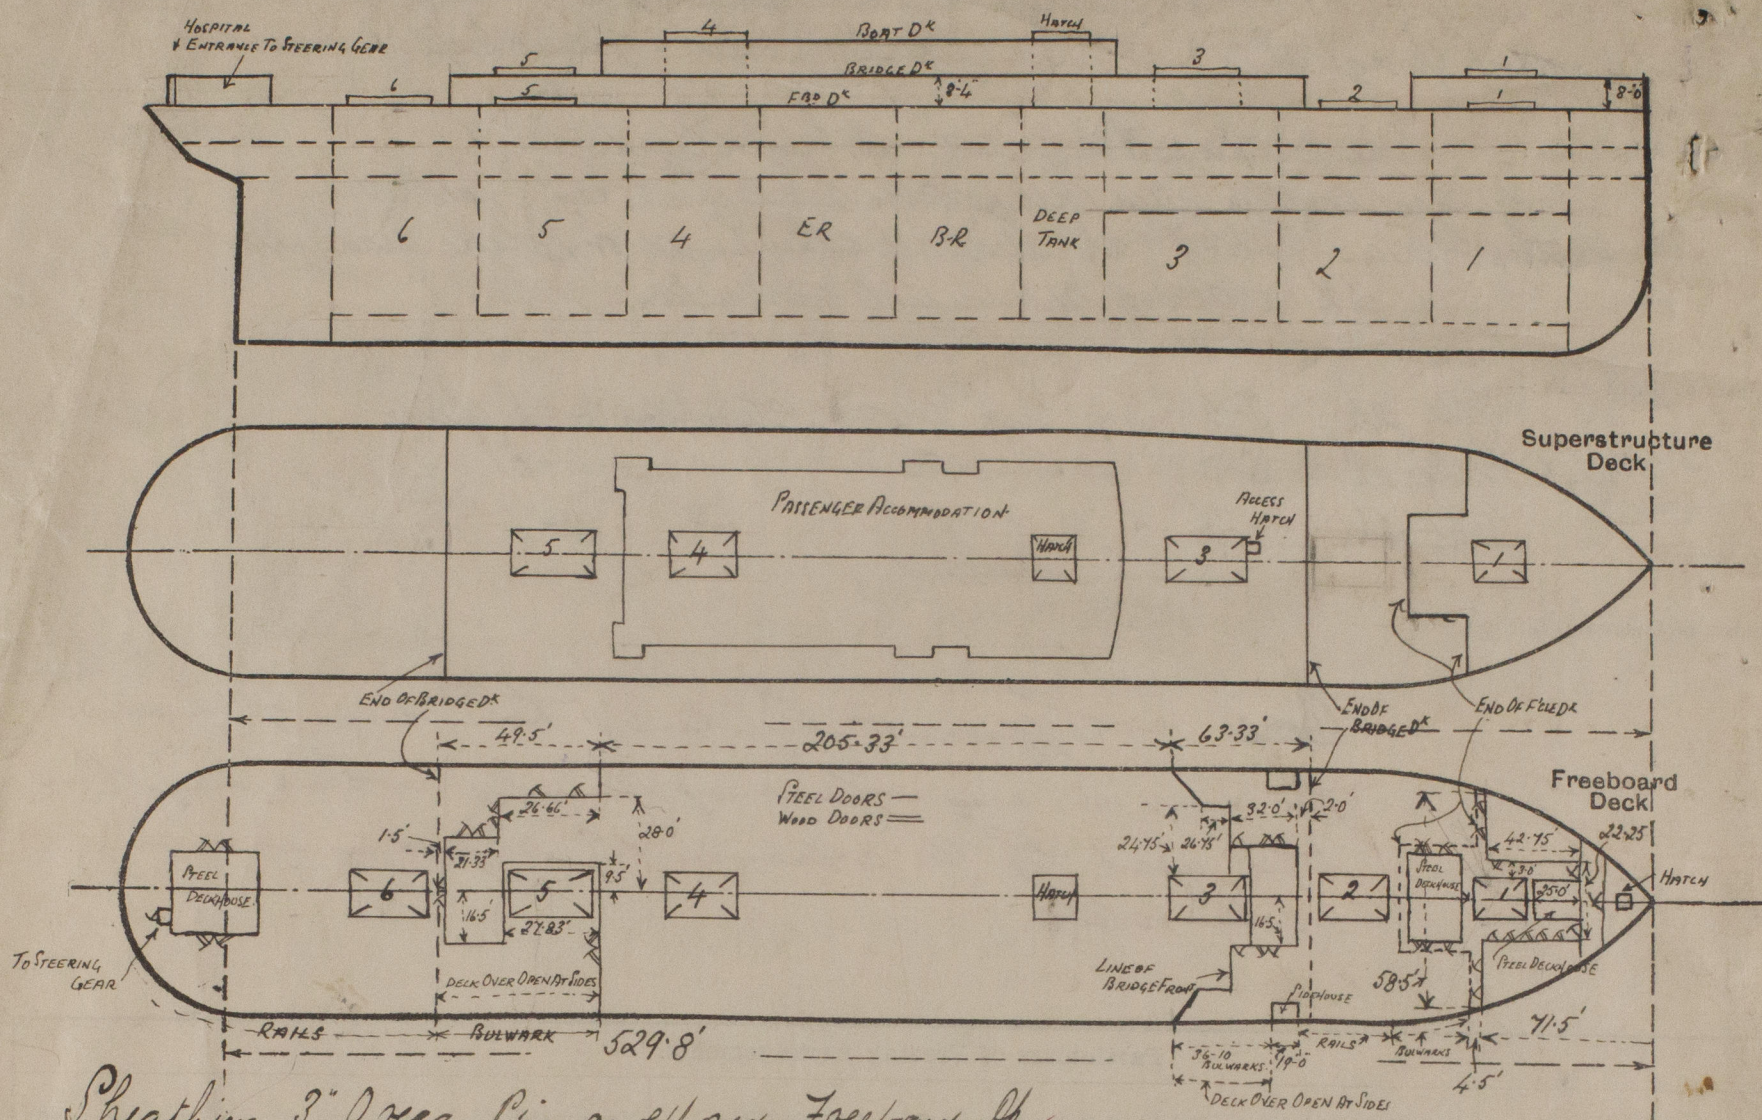 HOSPITAL
& ENTRANCE TO STEERING GEAR
4
BOAT DK
HATCH
5
BRIDGE DK
3
1
6
5
FBD DK
8'-4"
2
1
8'-0
6
5
4
ER
B-R
DEEP
TANK
3
2
1
Superstructure
Deck
PASSENGER ACCOMMODATION
ACCESS
HATCH
5
4
HATCH
3
1
END OF BRIDGE DK
END OF
BRIDGE DK
END OF F'CLE DK
49.5'
205.33'
63.33'
Freeboard
Deck
STEEL DOORS
WOOD DOORS
26.66'
28.0'
1.5'
21.33'
9.5'
16.5'
27.83'
24.75'
26.75'
32.0'
2.0'
42.75'
22.25
3.0'
25.0'
16.5
STEEL
DECKHOUSE
6
5
4
HATCH
3
2
STEEL
DECKHOUSE
1
HATCH
TO STEERING
GEAR
DECK OVER OPEN AT SIDES
LINE OF
BRIDGE FRONT
SIDEHOUSE
58.5'
STEEL DECKHOUSE
RAILS
BULWARK
529.8'
36-10
BULWARKS
19-0
RAILS
BULWARKS
71.5'
4.5'
DECK OVER OPEN AT SIDES
Sheathing 3"